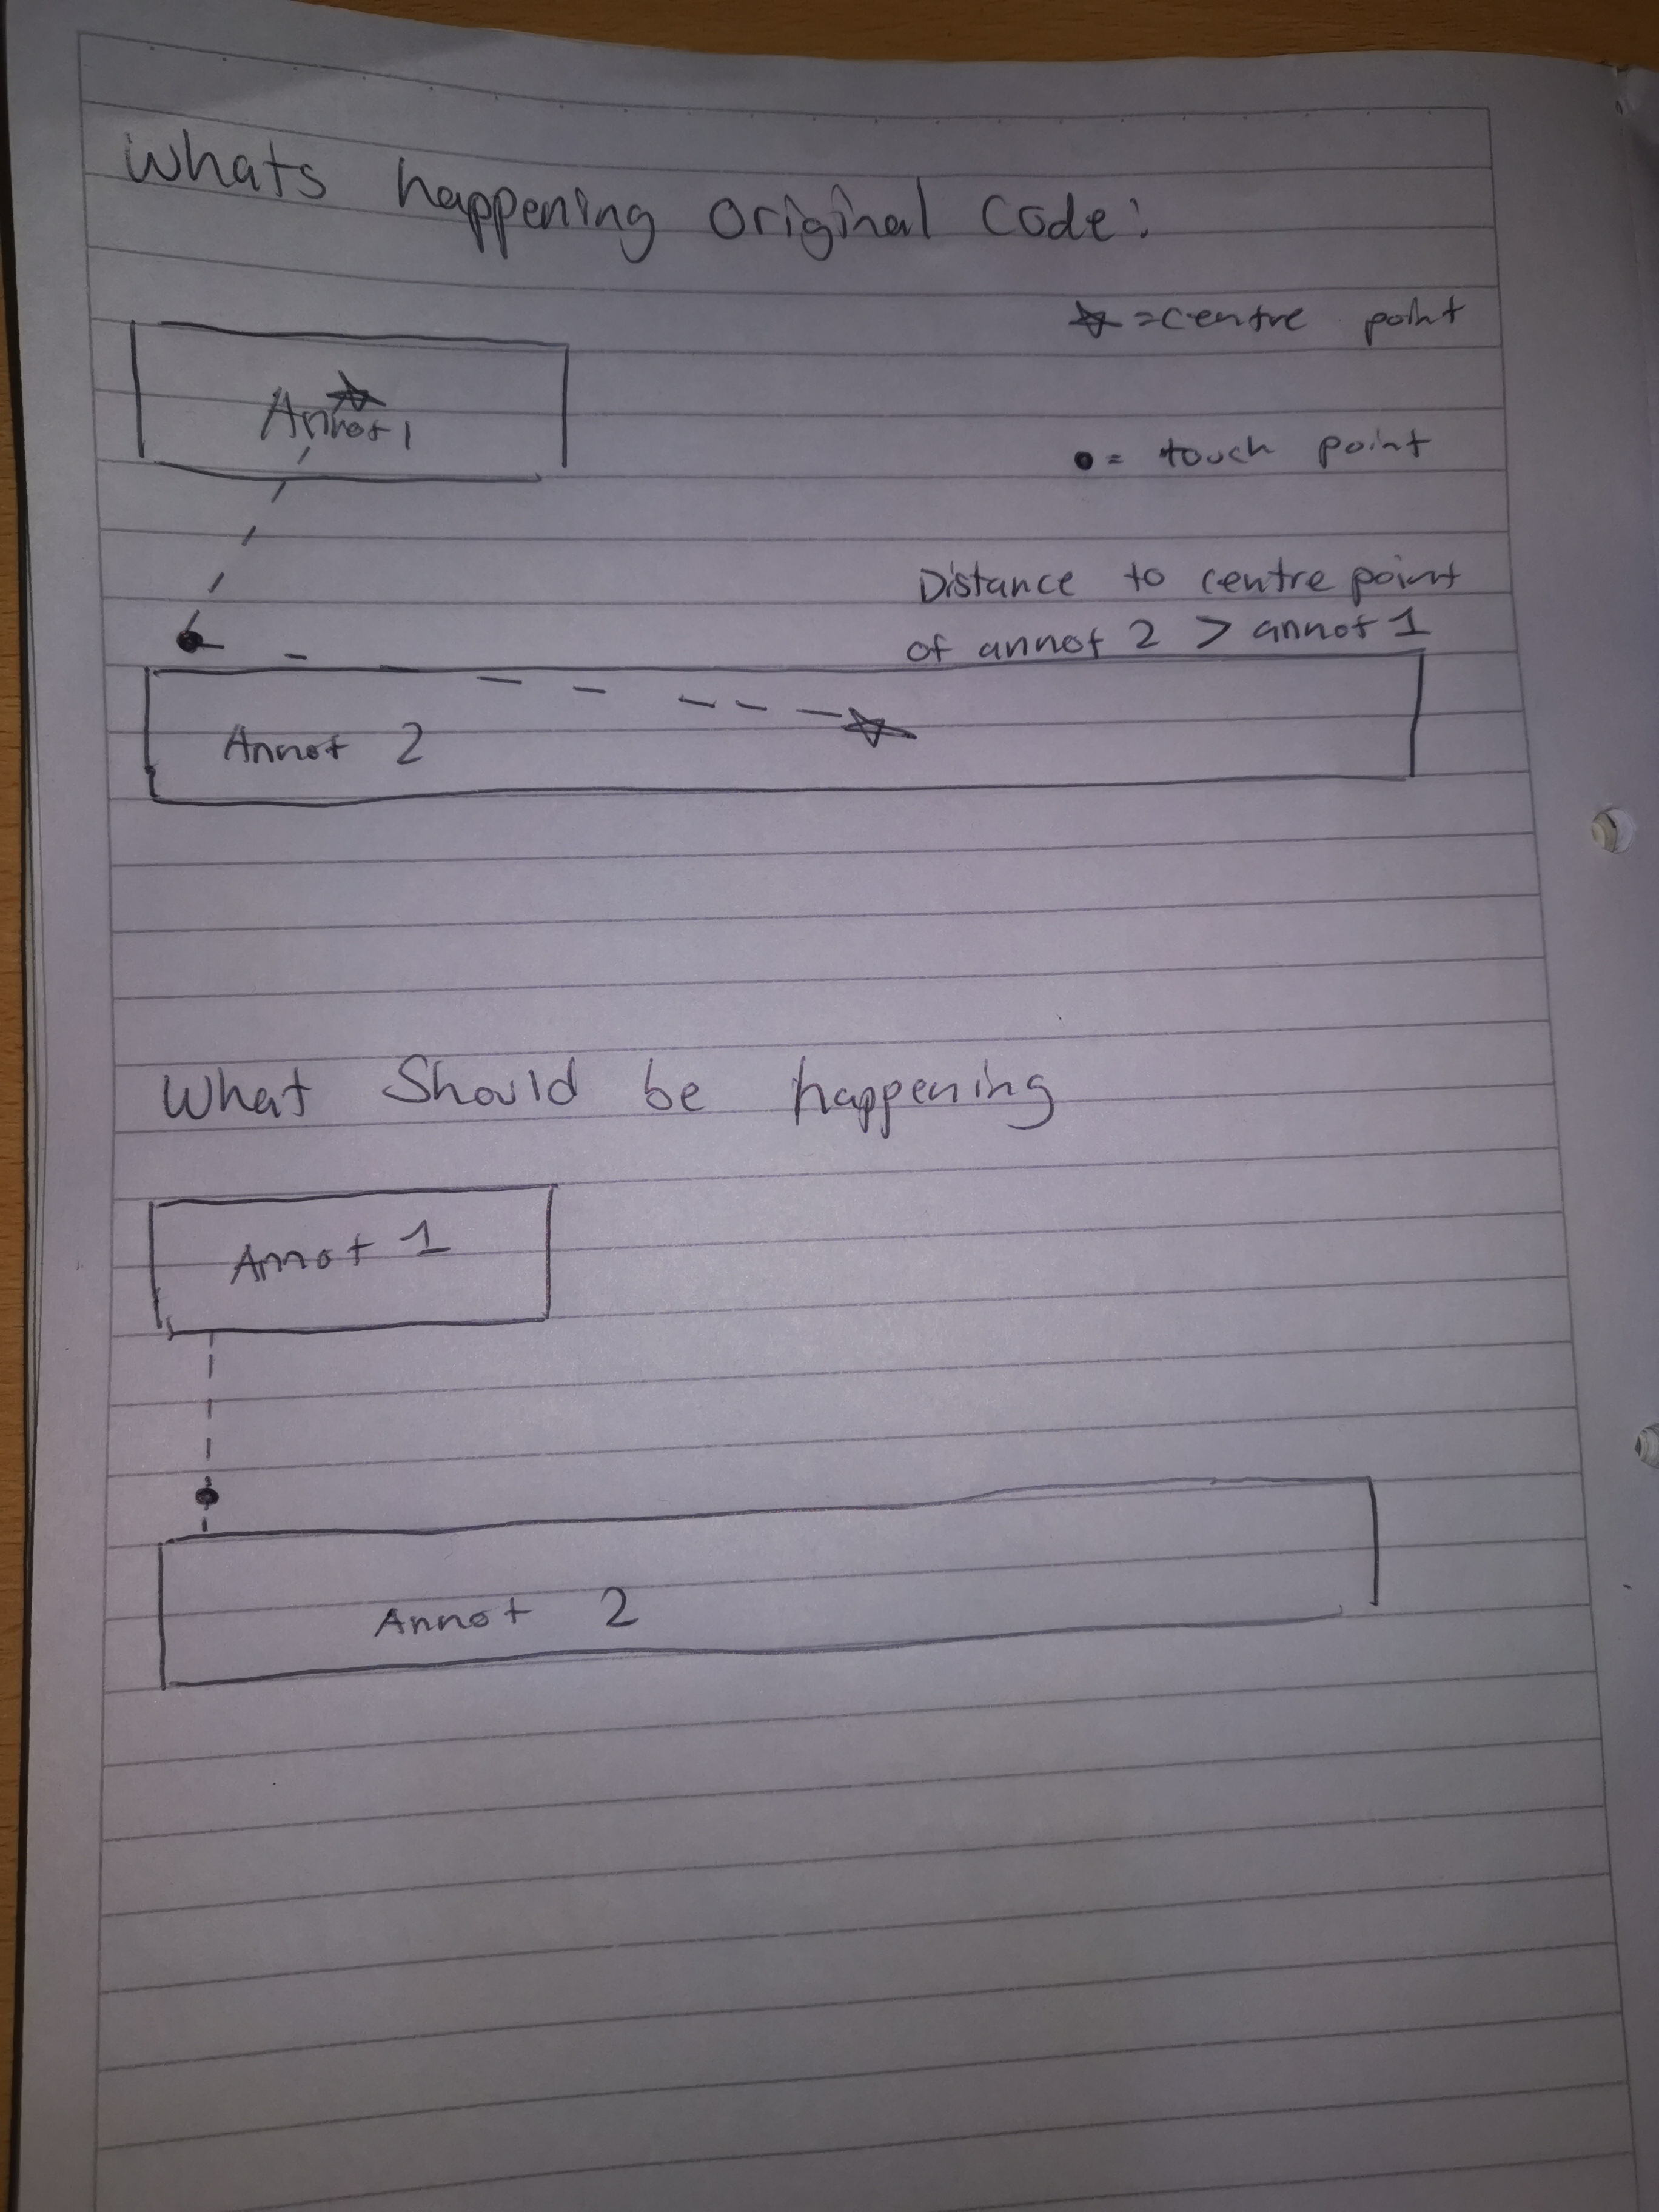 Whats happening original code:
☆ =centre point
Annot 1
● = touch point
Distance to centre point
of annot 2 > annot 1
Annot 2
What Should be happening
Annot 1
Annot 2